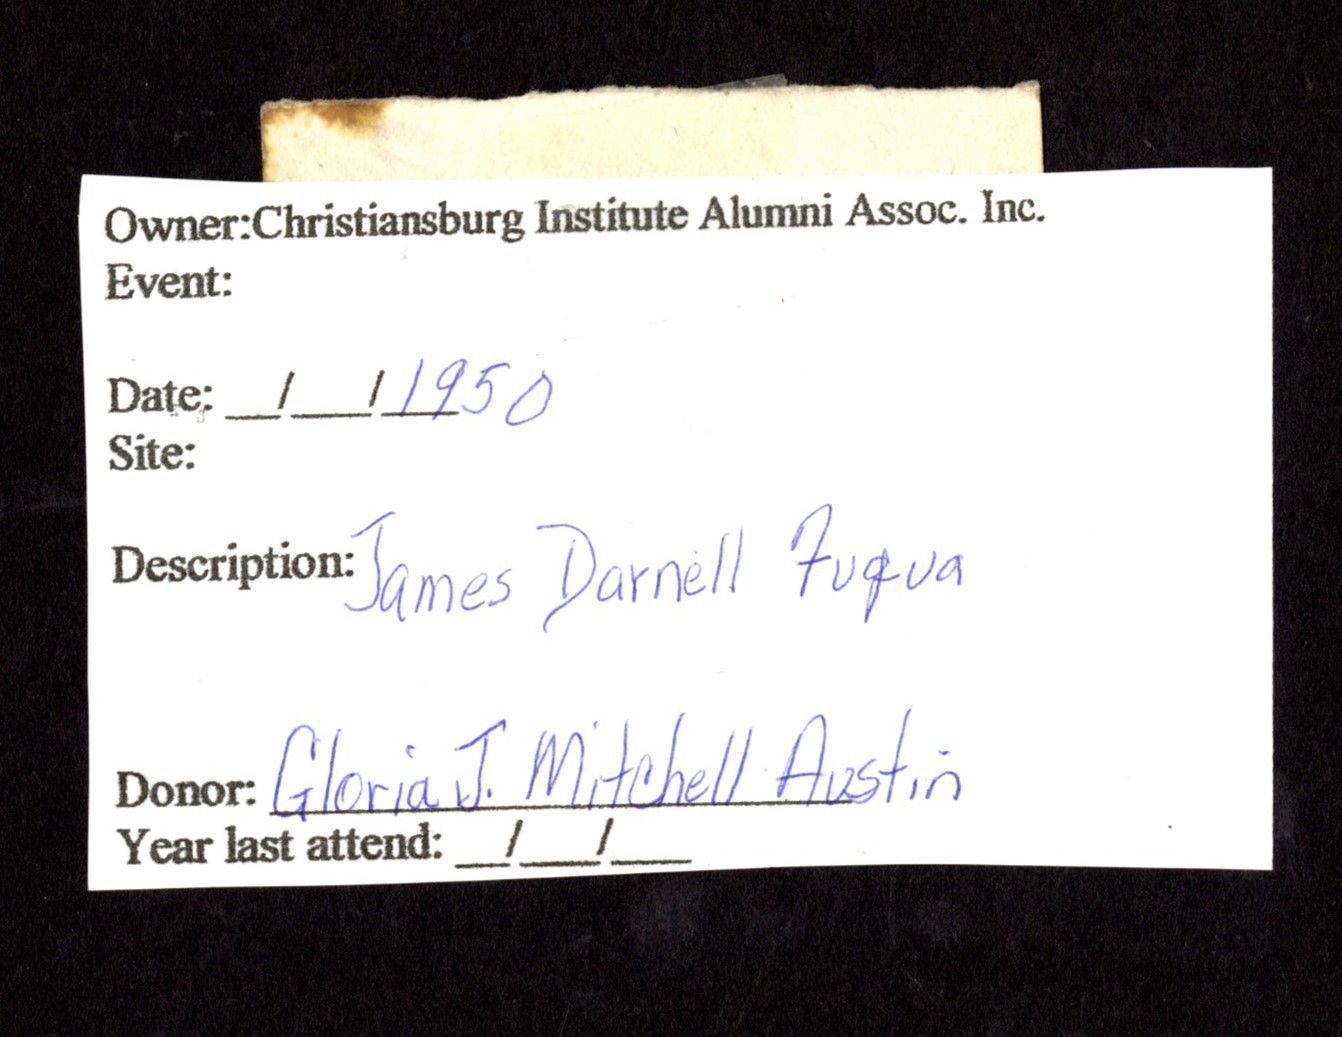 Owner:Christiansburg Institute Alumni Assoc. Inc.
Event:
Date: __/___/1950
Site:
Description: James Darnell Fuqua
Donor: Gloria J. Mitchell Austin
Year last attend: __/___/___